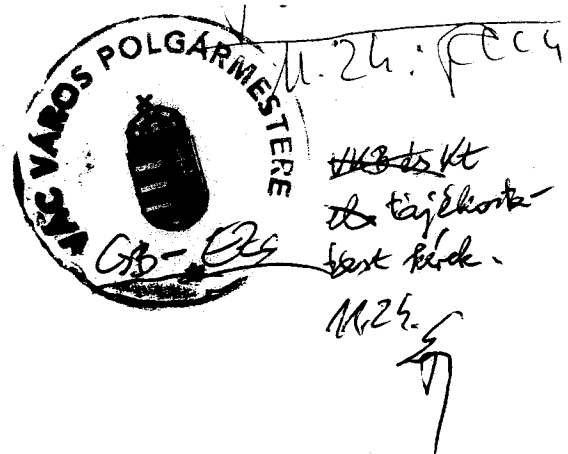 VÁC VÁROS POLGÁRMESTERE
11.24.
GB - EZs
VKB és Kt
tájékozta-
tást kérek.
11.24.